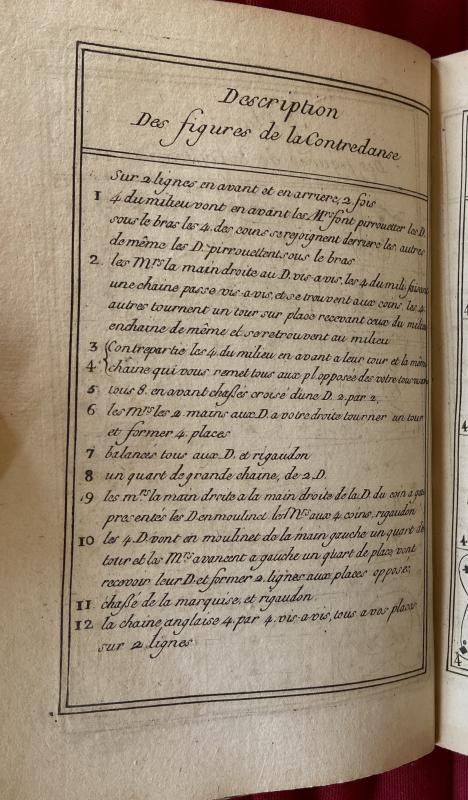 Description
Des figures de la Contredanse
Sur 2 lignes en avant et en arriere, 2 fois
1 4 du milieu vont en avant les Mrs font pirrouetter les D.
sous le bras les 4. des coins se rejoignent derriere les autres
de même les D. pirrouettent sous le bras
2. les Mrs la main droite au D. vis-a-vis, les 4 du mili. faisant
une chaine passe vis-a-vis, et se trouvent aux coins les 4.
autres tournent un tour sur place recevant ceux du milieu
enchaine de même et se retrouvent au milieu
3 Contrepartie les 4. du milieu en avant a leur tour et la même
4 chaine qui vous remet tous aux pl. opposée des votre
5 tous 8. en avant chassés croisé d'une D. 2. par 2.
6 les mrs les 2. mains aux D. a votre droite tourner un tour
et former 4. places
7 balancés tous aux D. et rigaudon
8 un quart de grande chaine, de 2. D.
9 les mrs la main droite a la main droite de la D. du coin a
presentés les D. en moulinet les Mrs aux 4 coins, rigaudon
10 les 4 D. vont en moulinet de la main gauche un quart de
tour et les Mrs avancent a gauche un quart de place vont
recevoir leur D. et former 2. lignes aux places opposeé
11 chasse de la marquise, et rigaudon.
12 la chaine anglaise 4. par 4. vis-a-vis, tous a vos places
sur 2 lignes
4
4
4